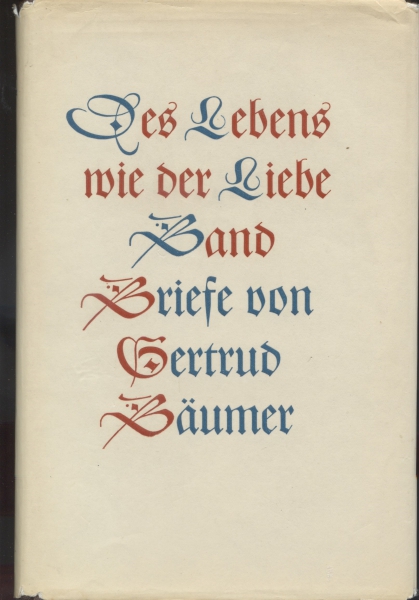 Des Lebens
wie der Liebe
Band
Briefe von
Gertrud
Bäumer